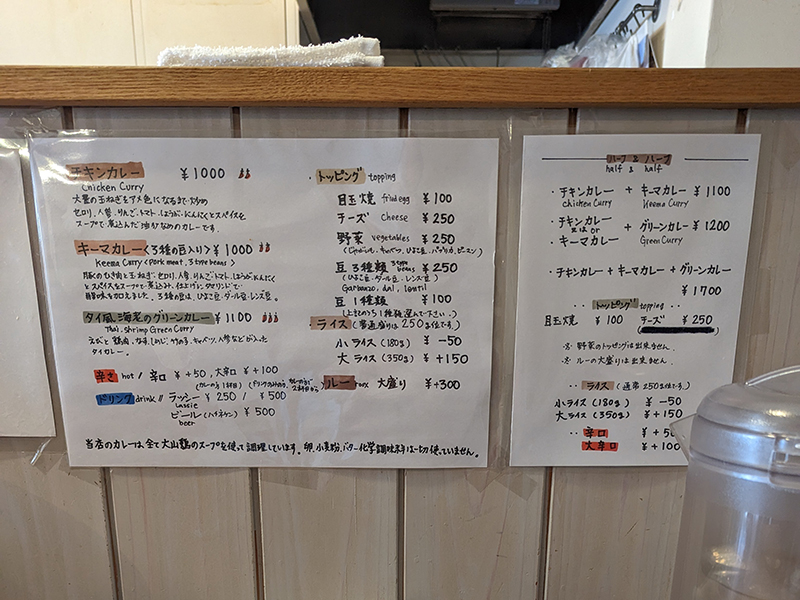 チキンカレー ¥1000
Chicken Curry
大量の玉ねぎをアメ色になるまで炒め
セロリ、人参、りんご、トマト、しょうが、にんにくとスパイスを
スープで煮込んだ油少なめのカレーです。
キーマカレー<3種の豆入り> ¥1000
Keema Curry (Pork meat, 3 type beans)
豚のひき肉と玉ねぎ、セロリ、人参、りんご、トマト、しょうが、にんにく
とスパイスをスープで煮込み、仕上げにタマリンドで
3種の豆は、ひよこ豆・ダール豆・レンズ豆。
タイ風 海老のグリーンカレー ¥1100
Thai, shrimp Green Curry
えびと鶏肉、なす、しめじ、キャベツ、人参などが入った
タイカレー。
辛さ hot / 辛口 ¥+50, 大辛口 ¥+100
ドリンク drink // ラッシー ¥250 / ¥500
Lassie
ビール (ハイネケン) ¥500
beer
トッピング topping
目玉焼 fried egg ¥100
チーズ cheese ¥250
野菜 vegetables ¥250
(じゃがいも、キャベツ、ひよこ豆、パプリカ、ピーマン)
豆3種類 3 type beans ¥250
(ひよこ豆・ダール豆・レンズ豆)
Garbanzo, dal, lentil
豆1種類 ¥100
(上記のうち1種類選んで下さい。)
ライス (普通盛りは250g位です。)
小ライス (180g) ¥-50
大ライス (350g) ¥+150
ルー roux 大盛り ¥+300
当店のカレーは、全て大山鶏のスープを使って調理しています。卵、小麦粉、バター、化学調味料等は一切使っていません。
ハーフ & ハーフ
half & half
・チキンカレー + キーマカレー ¥1100
chicken Curry Keema Curry
・チキンカレー
又は or + グリーンカレー ¥1200
・キーマカレー Green Curry
・チキンカレー + キーマカレー + グリーンカレー
¥1700
トッピング topping
目玉焼 ¥100 チーズ ¥250
※ 野菜のトッピングは出来ません。
※ ルーの大盛りは出来ません。
ライス (通常250g位です。)
小ライス (180g) ¥-50
大ライス (350g) ¥+150
辛口 ¥+50
大辛口 ¥+100